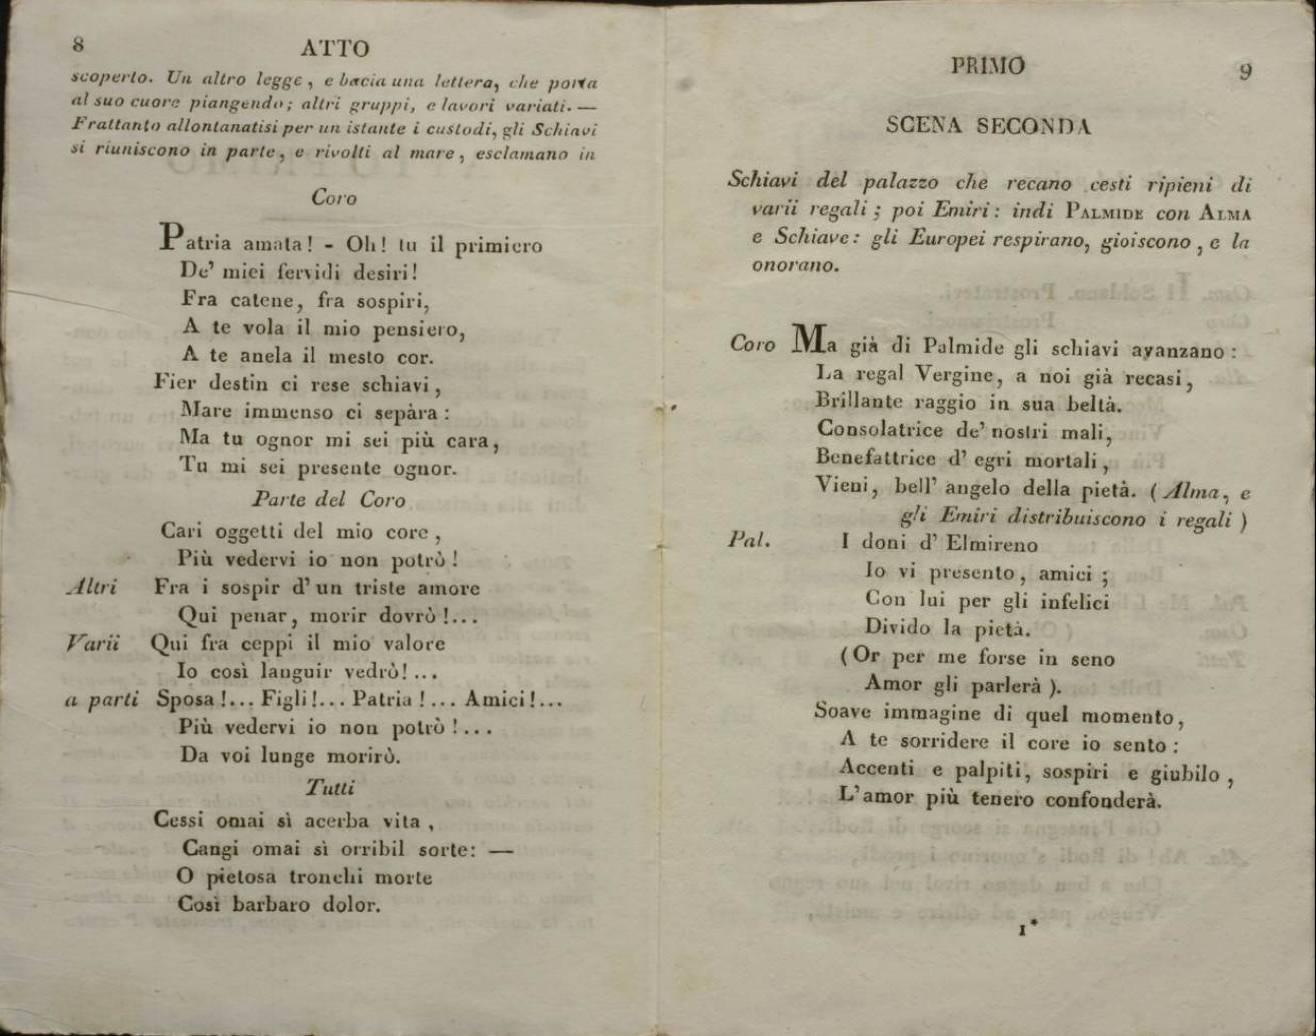 8
ATTO
scoperto. Un altro legge, e bacia una lettera, che porta
al suo cuore piangendo; altri gruppi, e lavori variati. —
Frattanto allontanatisi per un istante i custodi, gli Schiavi
si riuniscono in parte, e rivolti al mare, esclamano in
Coro
Patria amata! - Oh! tu il primiero
De' miei fervidi desiri!
Fra catene, fra sospiri,
A te vola il mio pensiero,
A te anela il mesto cor.
Fier destin ci rese schiavi,
Mare immenso ci sepàra:
Ma tu ognor mi sei più cara,
Tu mi sei presente ognor.
Parte del Coro
Cari oggetti del mio core,
Più vedervi io non potrò!
Altri Fra i sospir d'un triste amore
Qui penar, morir dovrò!...
Varii Qui fra ceppi il mio valore
Io così languir vedrò!...
a parti Sposa!... Figli!... Patria!... Amici!...
Più vedervi io non potrò!...
Da voi lunge morirò.
Tutti
Cessi omai sì acerba vita,
Cangi omai sì orribil sorte: —
O pietosa tronchi morte
Così barbaro dolor.
PRIMO
9
SCENA SECONDA
Schiavi del palazzo che recano cesti ripieni di
varii regali; poi Emiri: indi PALMIDE con ALMA
e Schiave: gli Europei respirano, gioiscono, e la
onorano.
Coro Ma già di Palmide gli schiavi avanzano:
La regal Vergine, a noi già recasi,
Brillante raggio in sua beltà.
Consolatrice de' nostri mali,
Benefattrice d' egri mortali,
Vieni, bell' angelo della pietà. (Alma, e
gli Emiri distribuiscono i regali)
Pal. I doni d' Elmireno
Io vi presento, amici;
Con lui per gli infelici
Divido la pietà.
(Or per me forse in seno
Amor gli parlerà).
Soave immagine di quel momento,
A te sorridere il core io sento:
Accenti e palpiti, sospiri e giubilo,
L'amor più tenero confonderà.
1*